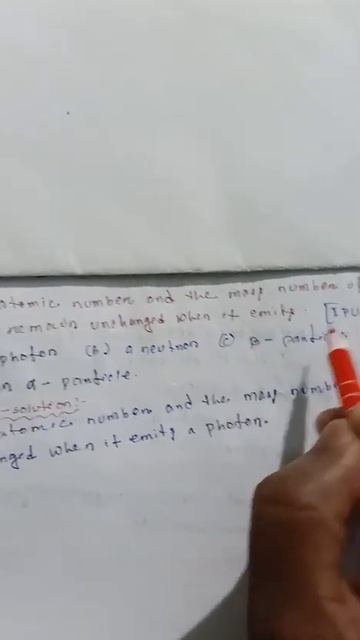 atomic number and the mass number of
remain unchanged when it emits. [IPU
photon (b) a neutron (c) β-particle
an α-particle.
-solution:-
atomic number and the mass numbe
nged when it emits a photon.